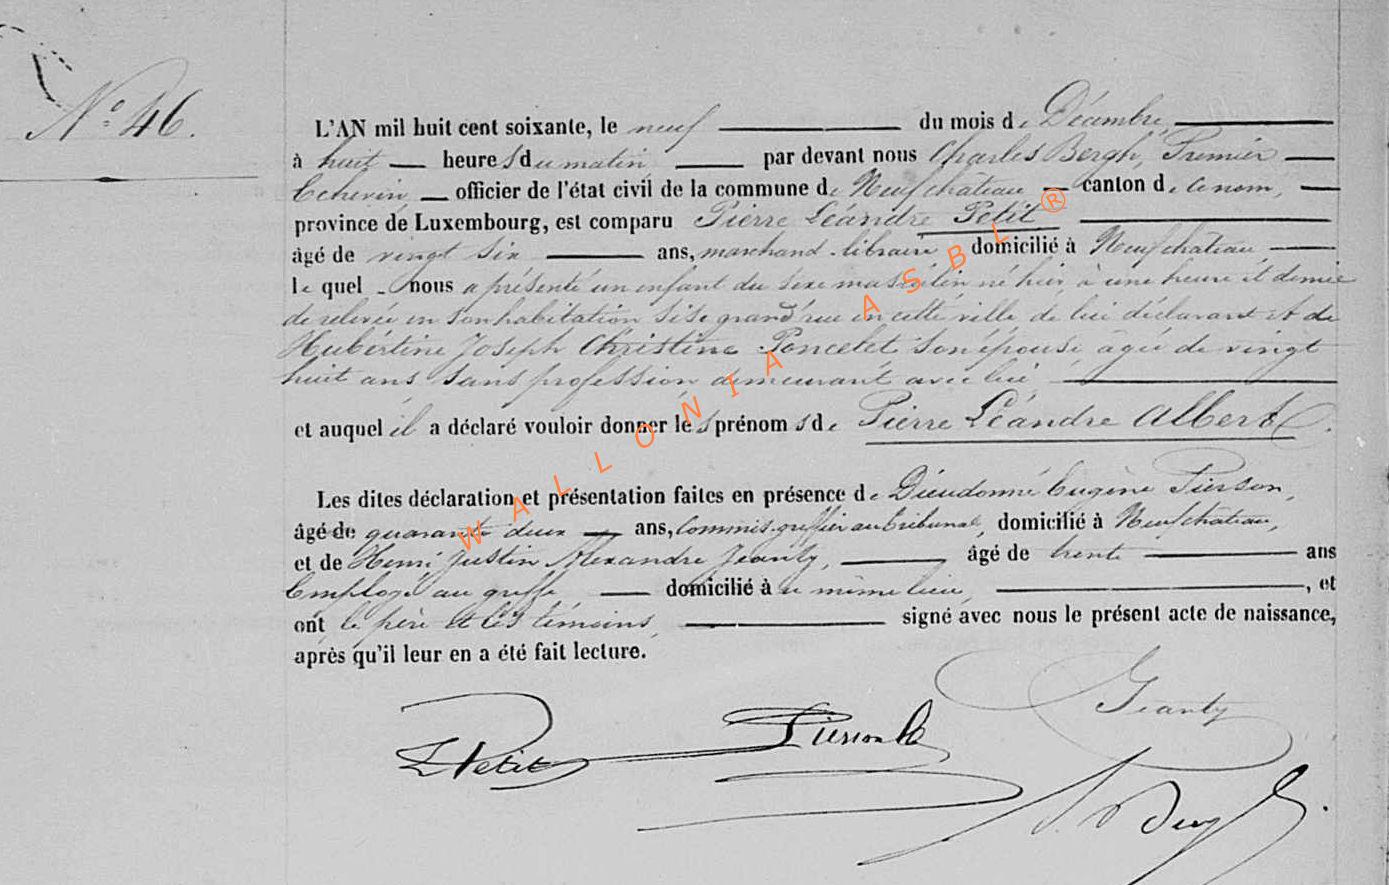 N° 46.
L'AN mil huit cent soixante, le neuf du mois de Décembre,
à huit heures du matin, par devant nous Charles Bergh, Premier
Echevin, officier de l'état civil de la commune de Neufchâteau canton de ce nom,
province de Luxembourg, est comparu Pierre Léandre Petit
âgé de vingt six ans, marchand-libraire domicilié à Neufchâteau,
le quel nous a présenté un enfant du sexe masculin né hier à une heure et demie
de relevée en son habitation sise grand'rue en cette ville de lui déclarant et de
Hubertine Joseph Christine Poncelet son épouse, âgée de vingt
huit ans sans profession, demeurant avec lui
et auquel il a déclaré vouloir donner les prénoms de Pierre Léandre Albert.
Les dites déclaration et présentation faites en présence de Dieudonné Eugène Pierson,
âgé de quarante deux ans, Commis-greffier au tribunal, domicilié à Neufchateau,
et de Henri Justin Alexandre Jeanty, âgé de trente ans
Employé au greffe domicilié à u même lieu, , et
ont le père et les témoins, signé avec nous le présent acte de naissance,
après qu'il leur en a été fait lecture.
L Petit Pierson Jeanty
WALLONIA ASBL ®